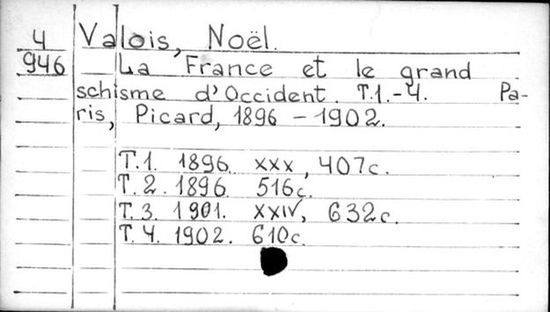 4
946
Valois, Noël.
La France et le grand
schisme d'Occident. T.1.-4. Pa-
ris, Picard, 1896 - 1902.
T.1. 1896. xxx, 407c.
T.2. 1896. 516c.
T.3. 1901. XXIV, 632c.
T.4. 1902. 610c.